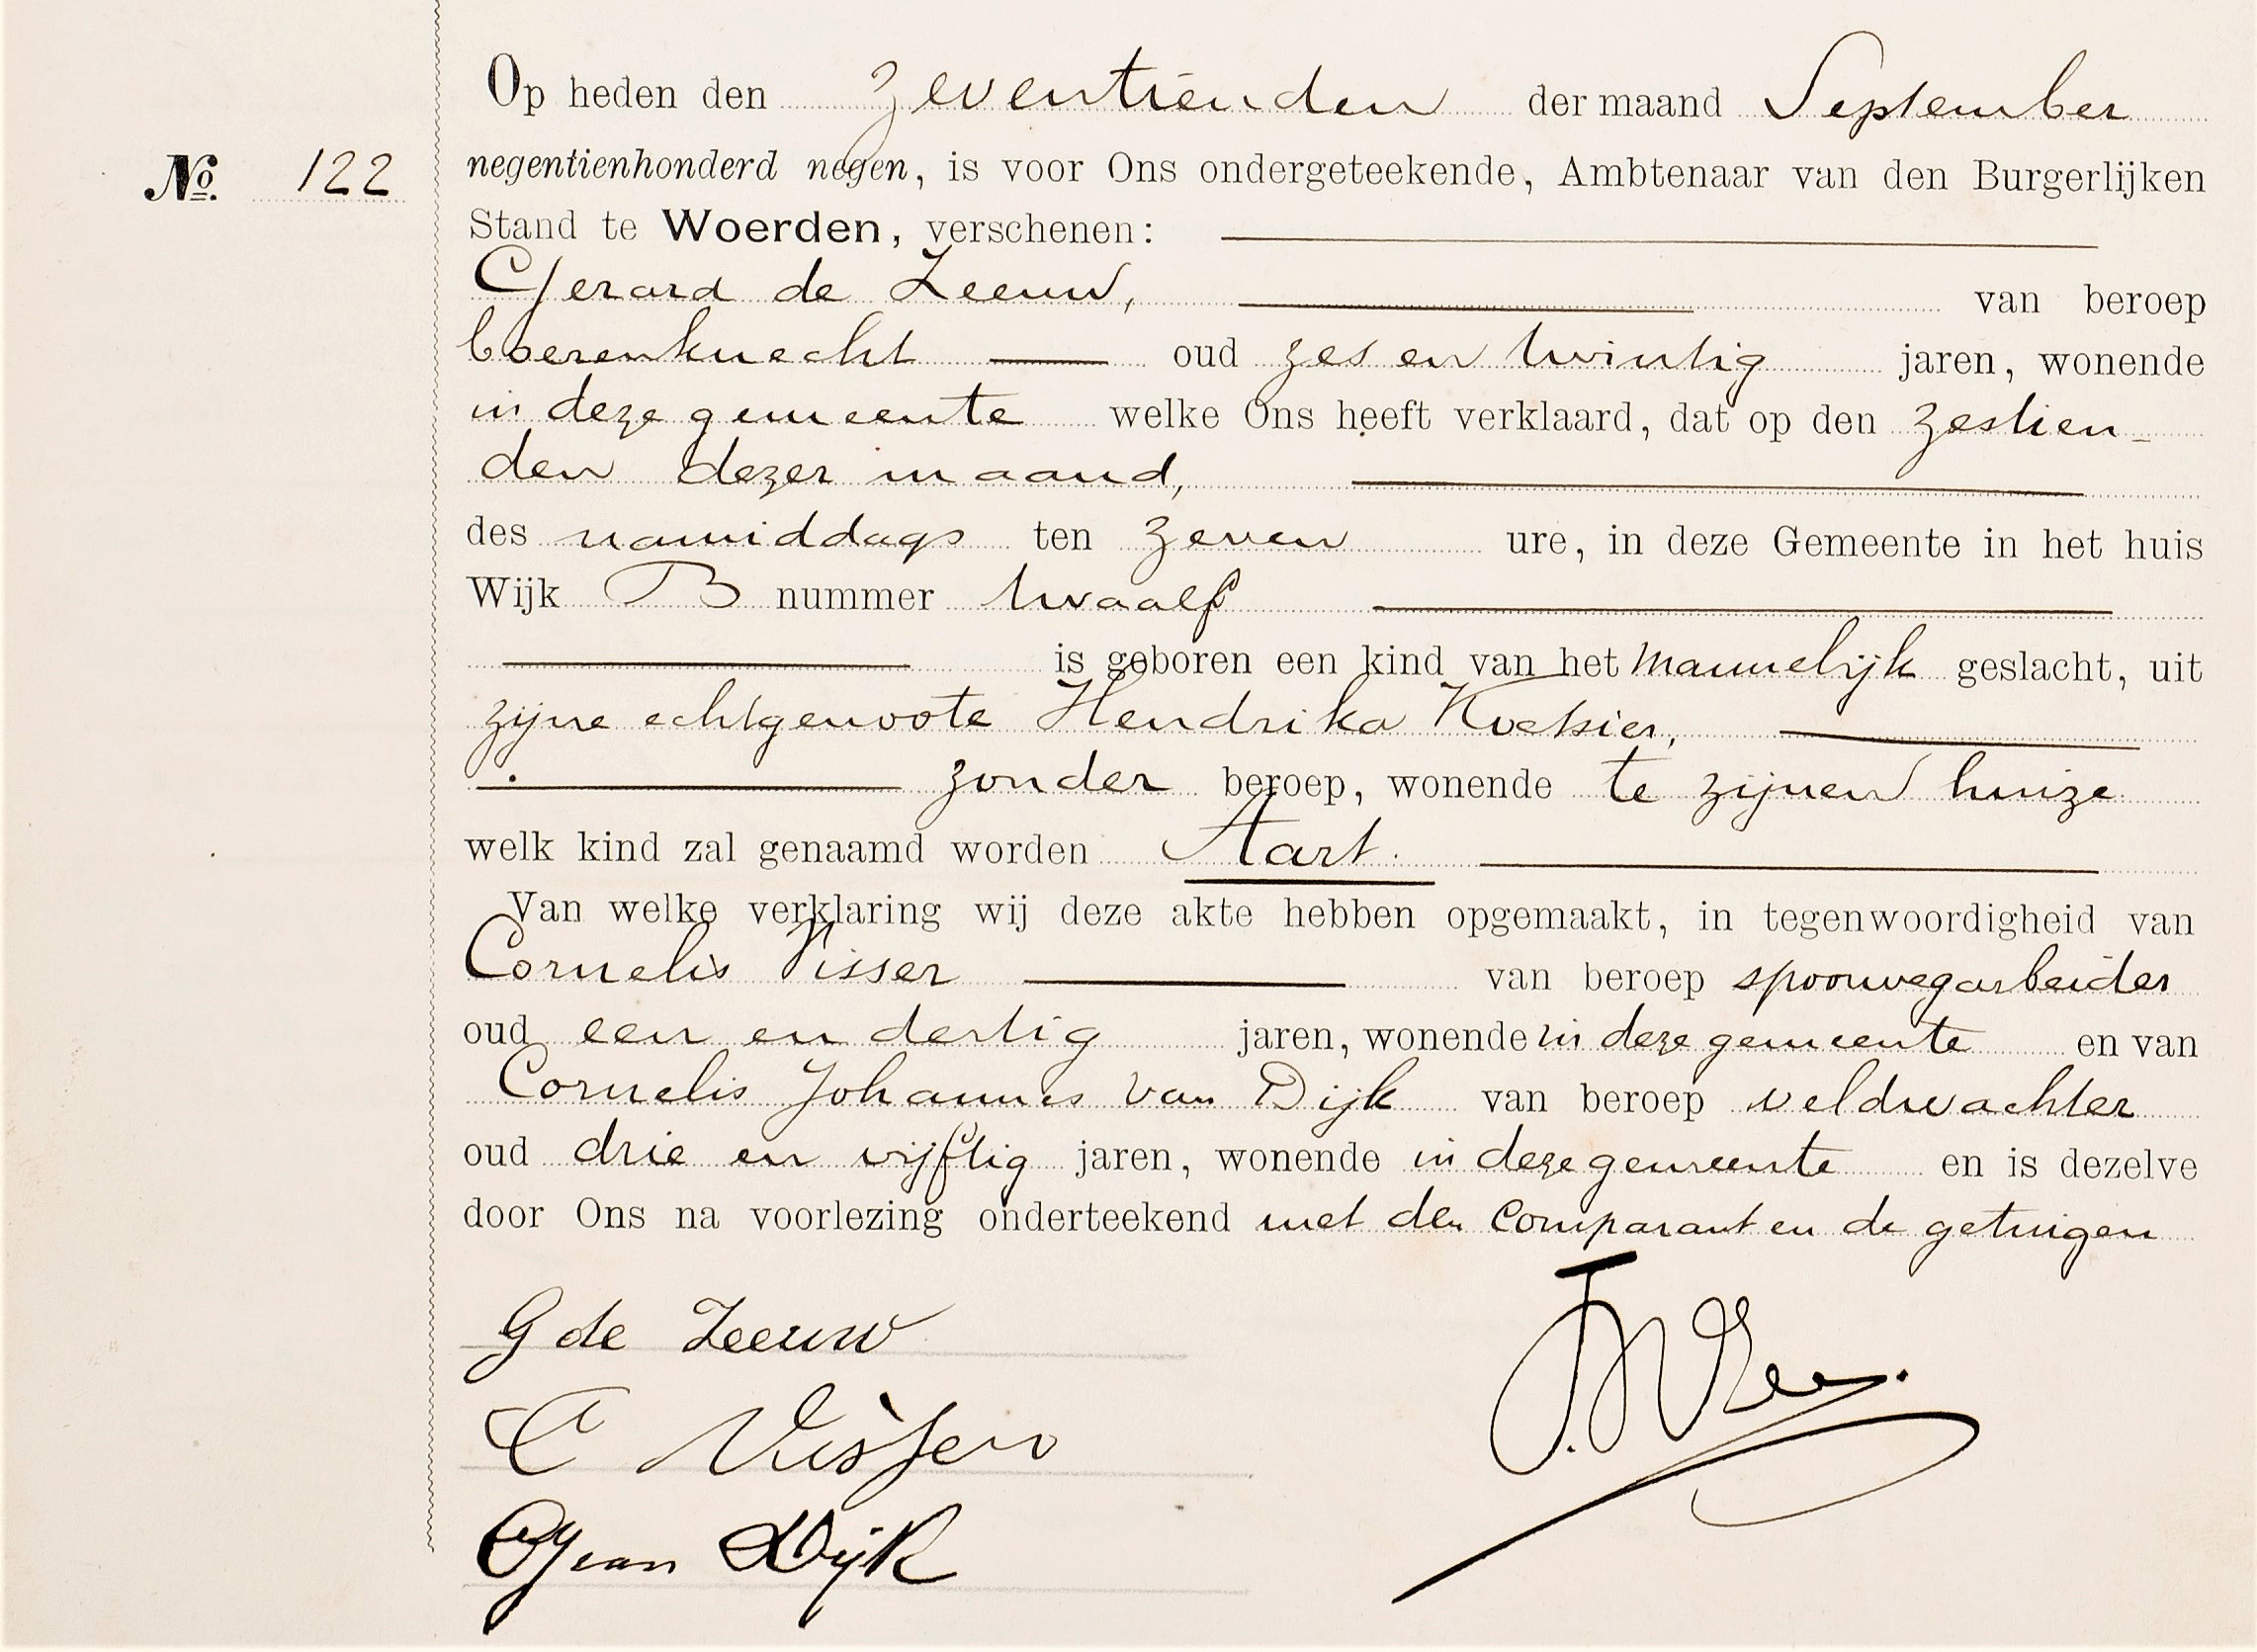 Op heden den zeventienden der maand September
No. 122
negentienhonderd negen, is voor Ons ondergeteekende, Ambtenaar van den Burgerlijken
Stand te Woerden, verschenen:
Gerard de Leeuw, van beroep
boerenknecht oud zes en twintig jaren, wonende
in deze gemeente welke Ons heeft verklaard, dat op den zestien-
den dezer maand,
des namiddags ten zeven ure, in deze Gemeente in het huis
Wijk B nummer twaalf
is geboren een kind van het mannelijk geslacht, uit
zijne echtgenoote Hendrika
zonder beroep, wonende te zijnen huize
welk kind zal genaamd worden Aart.
Van welke verklaring wij deze akte hebben opgemaakt, in tegenwoordigheid van
Cornelis Visser van beroep spoorwegarbeider
oud een en dertig jaren, wonende in deze gemeente en van
Cornelis Johannes van Dijk van beroep veldwachter
oud drie en vijftig jaren, wonende in deze gemeente en is dezelve
door Ons na voorlezing onderteekend met den Comparant en de getuigen
G de Leeuw
C Visser
CJ van Dijk